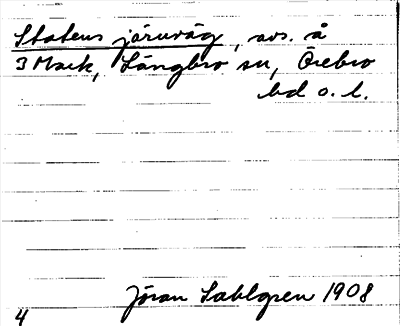 Statens järnväg, avs. å
3 Mark, Längbro sn, Örebro
hd o. l.
Jöran Sahlgren 1908
4